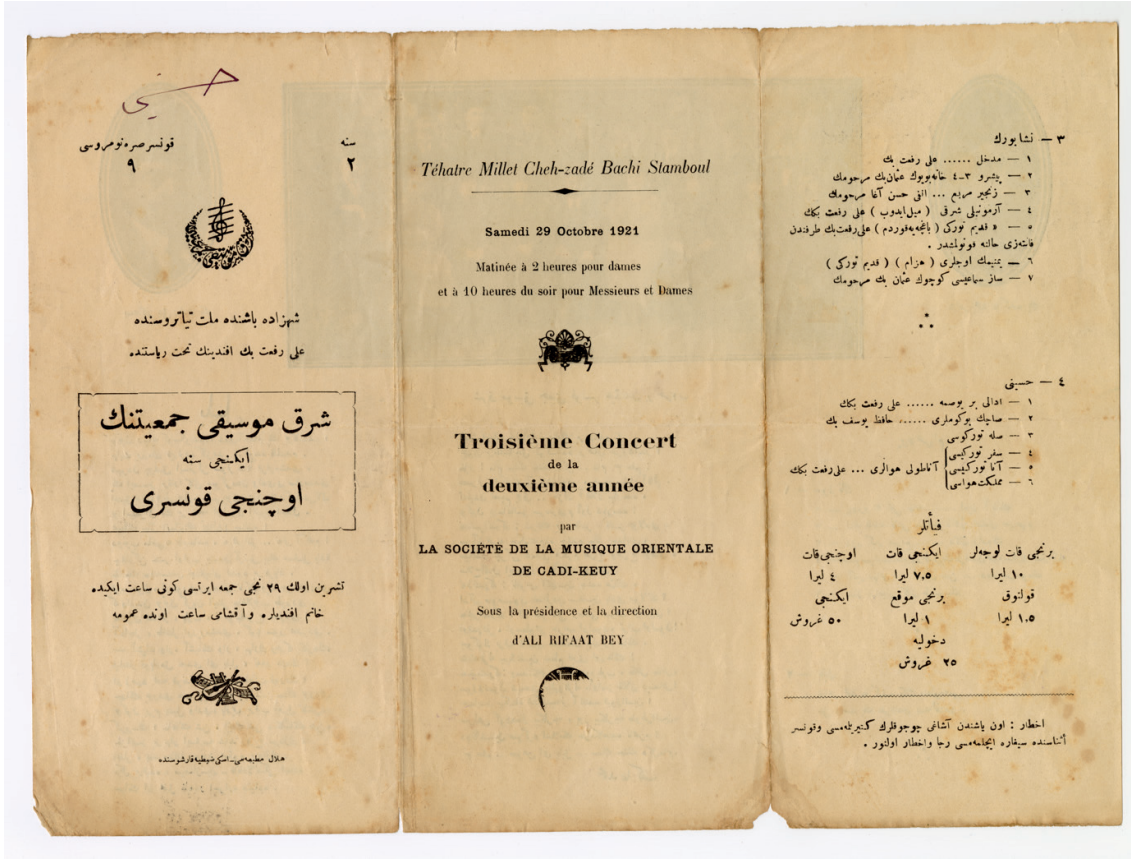 حسنی
سنه
٢
قونسر صره نومروسی
٩
شهزاده باشنده ملت تیاتروسنده
علی رفعت بك افندینك تحت ریاستنده
شرق موسیقی جمعیتنك
ایکنجی سنه
اوچنجی قونسری
تشرین اولك ٢٩ نجی جمعه ایرتسی کونی ساعت ایکیده
خانم افندیلره و آقشامی ساعت اونده عمومه
هلال مطبعه‌سی ـ اسکی ضبطیه قارشوسنده
Téhatre Millet Cheh-zadé Bachi Stamboul
Samedi 29 Octobre 1921
Matinée à 2 heures pour dames
et à 10 heures du soir pour Messieurs et Dames
Troisième Concert
de la
deuxième année
par
LA SOCIÉTÉ DE LA MUSIQUE ORIENTALE
DE CADI-KEUY
Sous la présidence et la direction
d'ALI RIFAAT BEY
٣ — نشابورك
١ — مدخل ...... علی رفعت بك
٢ — پیشرو ٣-٤ خانه بویوك عثمان بك مرحومك
٣ — زنجیر مربع ... الفی حسن آغا مرحومك
٤ — آرمونیلی شرقی ( میل ایدوب ) علی رفعت بكك
٥ — » قدیم تورکی ( باغچه‌یه قوردم ) علی رفعت بك طرفندن
فانته‌زی حالنه قونولمشدر .
٦ — یمنیمك اوجلری ( هزام ) ( قدیم تورکی )
٧ — ساز سماعیسی کوچوك عثمان بك مرحومك
٤ — حسینی
١ — ادالی بر یوصمه ...... علی رفعت بكك
٢ — صاچك بوکوملری ...... حافظ یوسف بك
٣ — صله تورکوسی
٤ — سفر تورکیسی
٥ — آنا تورکیسی آناطولی هوالری ... علی رفعت بكك
٦ — مملکت هواسی
فیأتلر
برنجی قات لوجه‌لر ایکنجی قات اوچنجی قات
١٠ لیرا ٧،٥ لیرا ٤ لیرا
قولتوق برنجی موقع ایکنجی
١،٥ لیرا ١ لیرا ٥٠ غروش
دخولیه
٢٥ غروش
اخطار : اون یاشندن آشاغی چوجوقلرك کتیریلمه‌مسی و قونسر
أثناسنده سیغاره ایچلمه‌مسی رجا و اخطار اولنور .